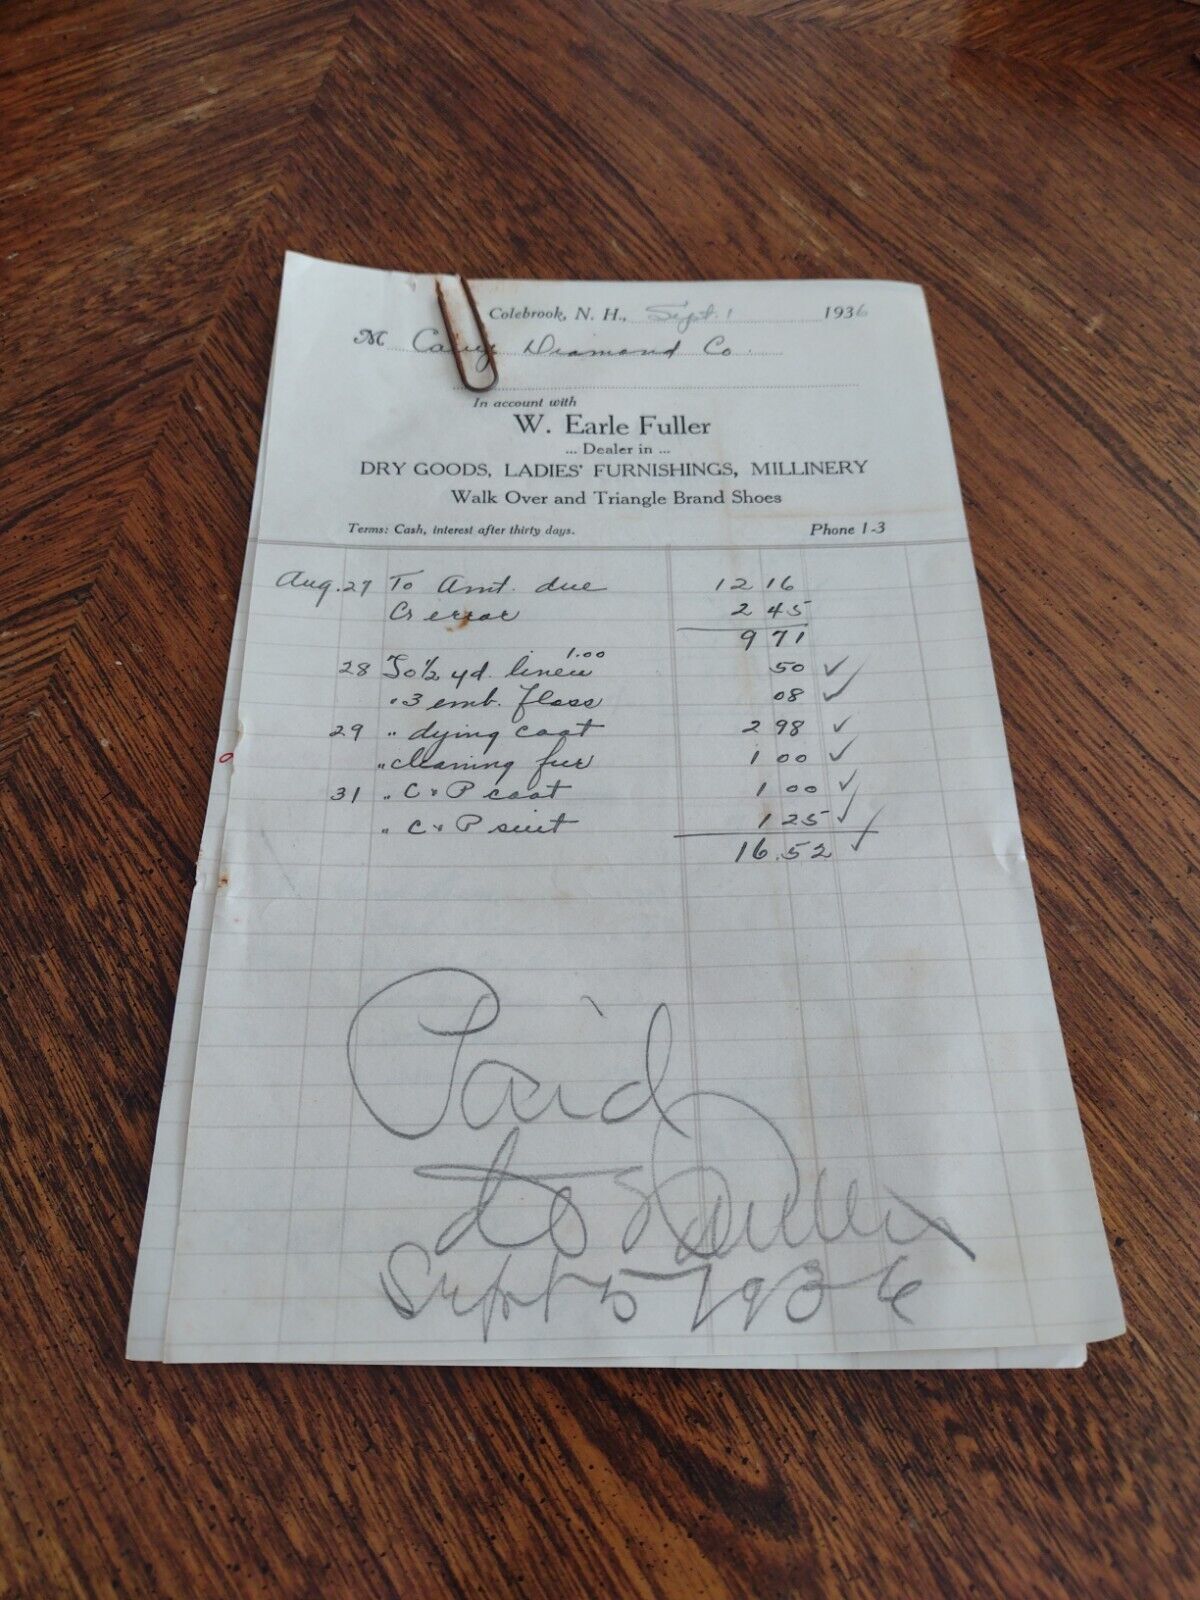 Colebrook, N. H., Sept. 1 1936
M Diamond Co
In account with
W. Earle Fuller
... Dealer in ...
DRY GOODS, LADIES' FURNISHINGS, MILLINERY
Walk Over and Triangle Brand Shoes
Terms: Cash, interest after thirty days. Phone 1-3
Aug. 27 To Amt. due 12 16
Cr error 2 45
9 71
1.00
28 To ½ yd. linen 50 ✓
" 3 emb. floss 08 ✓
29 " dying coat 2 98 ✓
" cleaning fur 1 00 ✓
31 " C & P coat 1 00 ✓
" C & P suit 1 25 ✓
16.52 ✓
Paid
Sept 5 1936